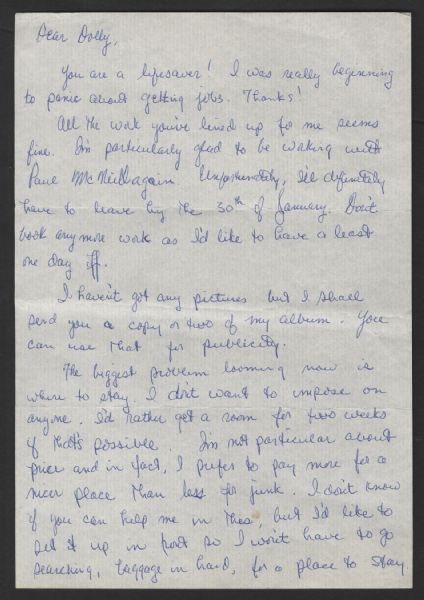 Dear Dolly,
You are a lifesaver! I was really beginning
to panic about getting jobs. Thanks!
All the work you've lined up for me seems
fine. I'm particularly glad to be working with
Paul McNeill again. Unfortunately, I'll definitely
have to leave by the 30th of January. Don't
book anymore work as I'd like to have a least
one day off.
I haven't got any pictures but I shall
send you a copy or two of my album. You
can use that for publicity.
The biggest problem looming now is
where to stay. I don't want to impose on
anyone. I'd rather get a room for two weeks
if that's possible. I'm not particular about
price and in fact, I prefer to pay more for a
nicer place than less for junk. I don't know
if you can help me in this, but I'd like to
set it up in front so I won't have to go
searching, baggage in hand, for a place to stay